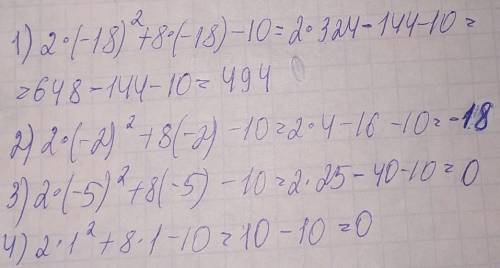 1) 2·(-18)²+8·(-18)-10=2·324-144-10=
=648-144-10=494
2) 2·(-2)²+8(-2)-10=2·4-16-10=-18
3) 2·(-5)²+8(-5)-10=2·25-40-10=0
4) 2·1²+8·1-10=10-10=0